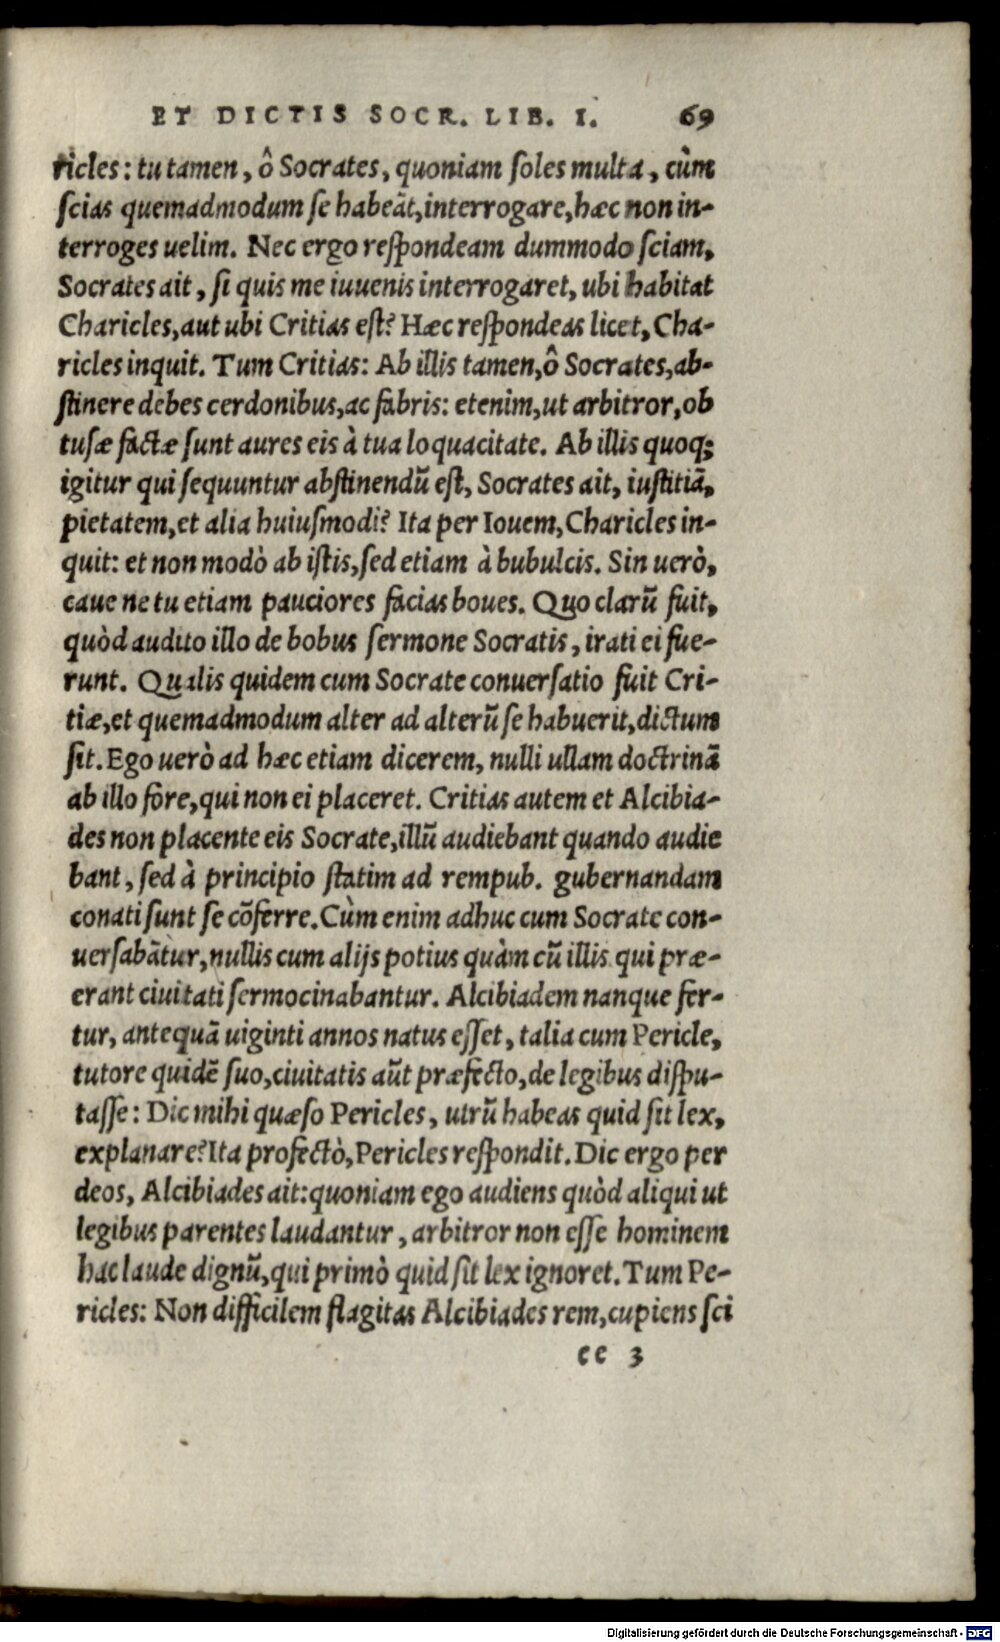 ET DICTIS SOCR. LIB. I. 69
ricles: tu tamen, ô Socrates, quoniam ſoles multa, cùm
ſcias quemadmodum ſe habeãt, interrogare, hæc non in-
terroges uelim. Nec ergo reſpondeam dummodo ſciam,
Socrates ait, ſi quis me iuuenis interrogaret, ubi habitat
Charicles, aut ubi Critias eſt? Hæc reſpondeas licet, Cha-
ricles inquit. Tum Critias: Ab illis tamen, ô Socrates, ab-
ſtinere debes cerdonibus, ac fabris: etenim, ut arbitror, ob
tuſæ factæ ſunt aures eis à tua loquacitate. Ab illis quoq;
igitur qui ſequuntur abſtinendũ eſt, Socrates ait, iuſtitiã,
pietatem, et alia huiuſmodi? Ita per Iouem, Charicles in-
quit: et non modò ab iſtis, ſed etiam à bubulcis. Sin uerò,
caue ne tu etiam pauciores facias boues. Quo clarũ fuit,
quòd audito illo de bobus ſermone Socratis, irati ei fue-
runt. Qualis quidem cum Socrate conuerſatio fuit Cri-
tiæ, et quemadmodum alter ad alterũ ſe habuerit, dictum
ſit. Ego uerò ad hæc etiam dicerem, nulli ullam doctrinã
ab illo fore, qui non ei placeret. Critias autem et Alcibia-
des non placente eis Socrate, illũ audiebant quando audie
bant, ſed à principio ſtatim ad rempub. gubernandam
conati ſunt ſe cõferre. Cùm enim adhuc cum Socrate con-
uerſabãtur, nullis cum alijs potius quàm cũ illis qui præ-
erant ciuitati ſermocinabantur. Alcibiadem nanque fer-
tur, antequã uiginti annos natus eſſet, talia cum Pericle,
tutore quidẽ ſuo, ciuitatis aũt præfecto, de legibus diſpu-
taſſe: Dic mihi quæſo Pericles, utrũ habeas quid ſit lex,
explanare? Ita profectò, Pericles reſpondit. Dic ergo per
deos, Alcibiades ait: quoniam ego audiens quòd aliqui ut
legibus parentes laudantur, arbitror non eſſe hominem
hac laude dignũ, qui primò quid ſit lex ignoret. Tum Pe-
ricles: Non difficilem flagitas Alcibiades rem, cupiens ſci
ee 3
Digitalisierung gefördert durch die Deutsche Forschungsgemeinschaft - DFG